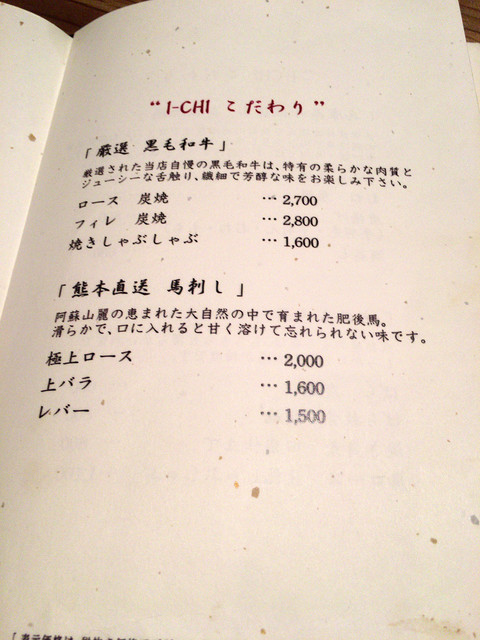 “I-CHI こだわり”
「厳選 黒毛和牛」
厳選された当店自慢の黒毛和牛は、特有の柔らかな肉質と
ジューシーな舌触り、繊細で芳醇な味をお楽しみ下さい。
ロース 炭焼 … 2,700
フィレ 炭焼 … 2,800
焼きしゃぶしゃぶ … 1,600
「熊本直送 馬刺し」
阿蘇山麗の恵まれた大自然の中で育まれた肥後馬。
滑らかで、口に入れると甘く溶けて忘れられない味です。
極上ロース … 2,000
上バラ … 1,600
レバー … 1,500
「表示価格は